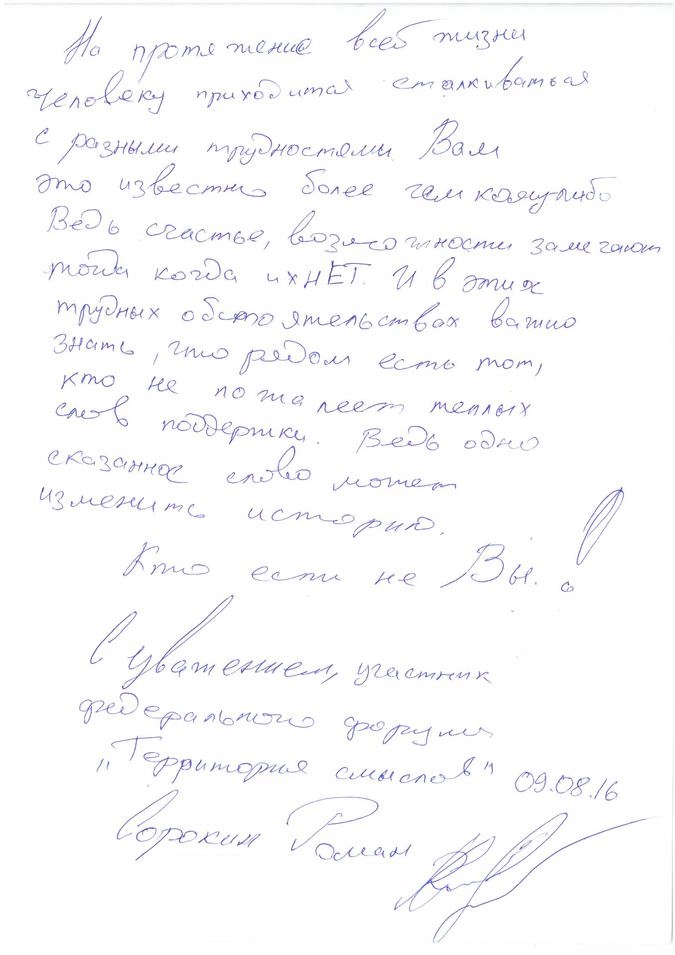 На протяжение всей жизни
человеку приходится сталкиваться
с разными трудностями. Вам
это известно более чем кому-либо
Ведь счастье, возможности замечают
тогда когда их НЕТ. И в этих
трудных обстоятельствах важно
знать, что рядом есть тот,
кто не пожалеет теплых
слов поддержки. Ведь одно
сказанное слово может
изменить историю.
Кто если не Вы!
С уважением, участник
федерального форума
"Территория смыслов" 09.08.16
Сорокин Роман